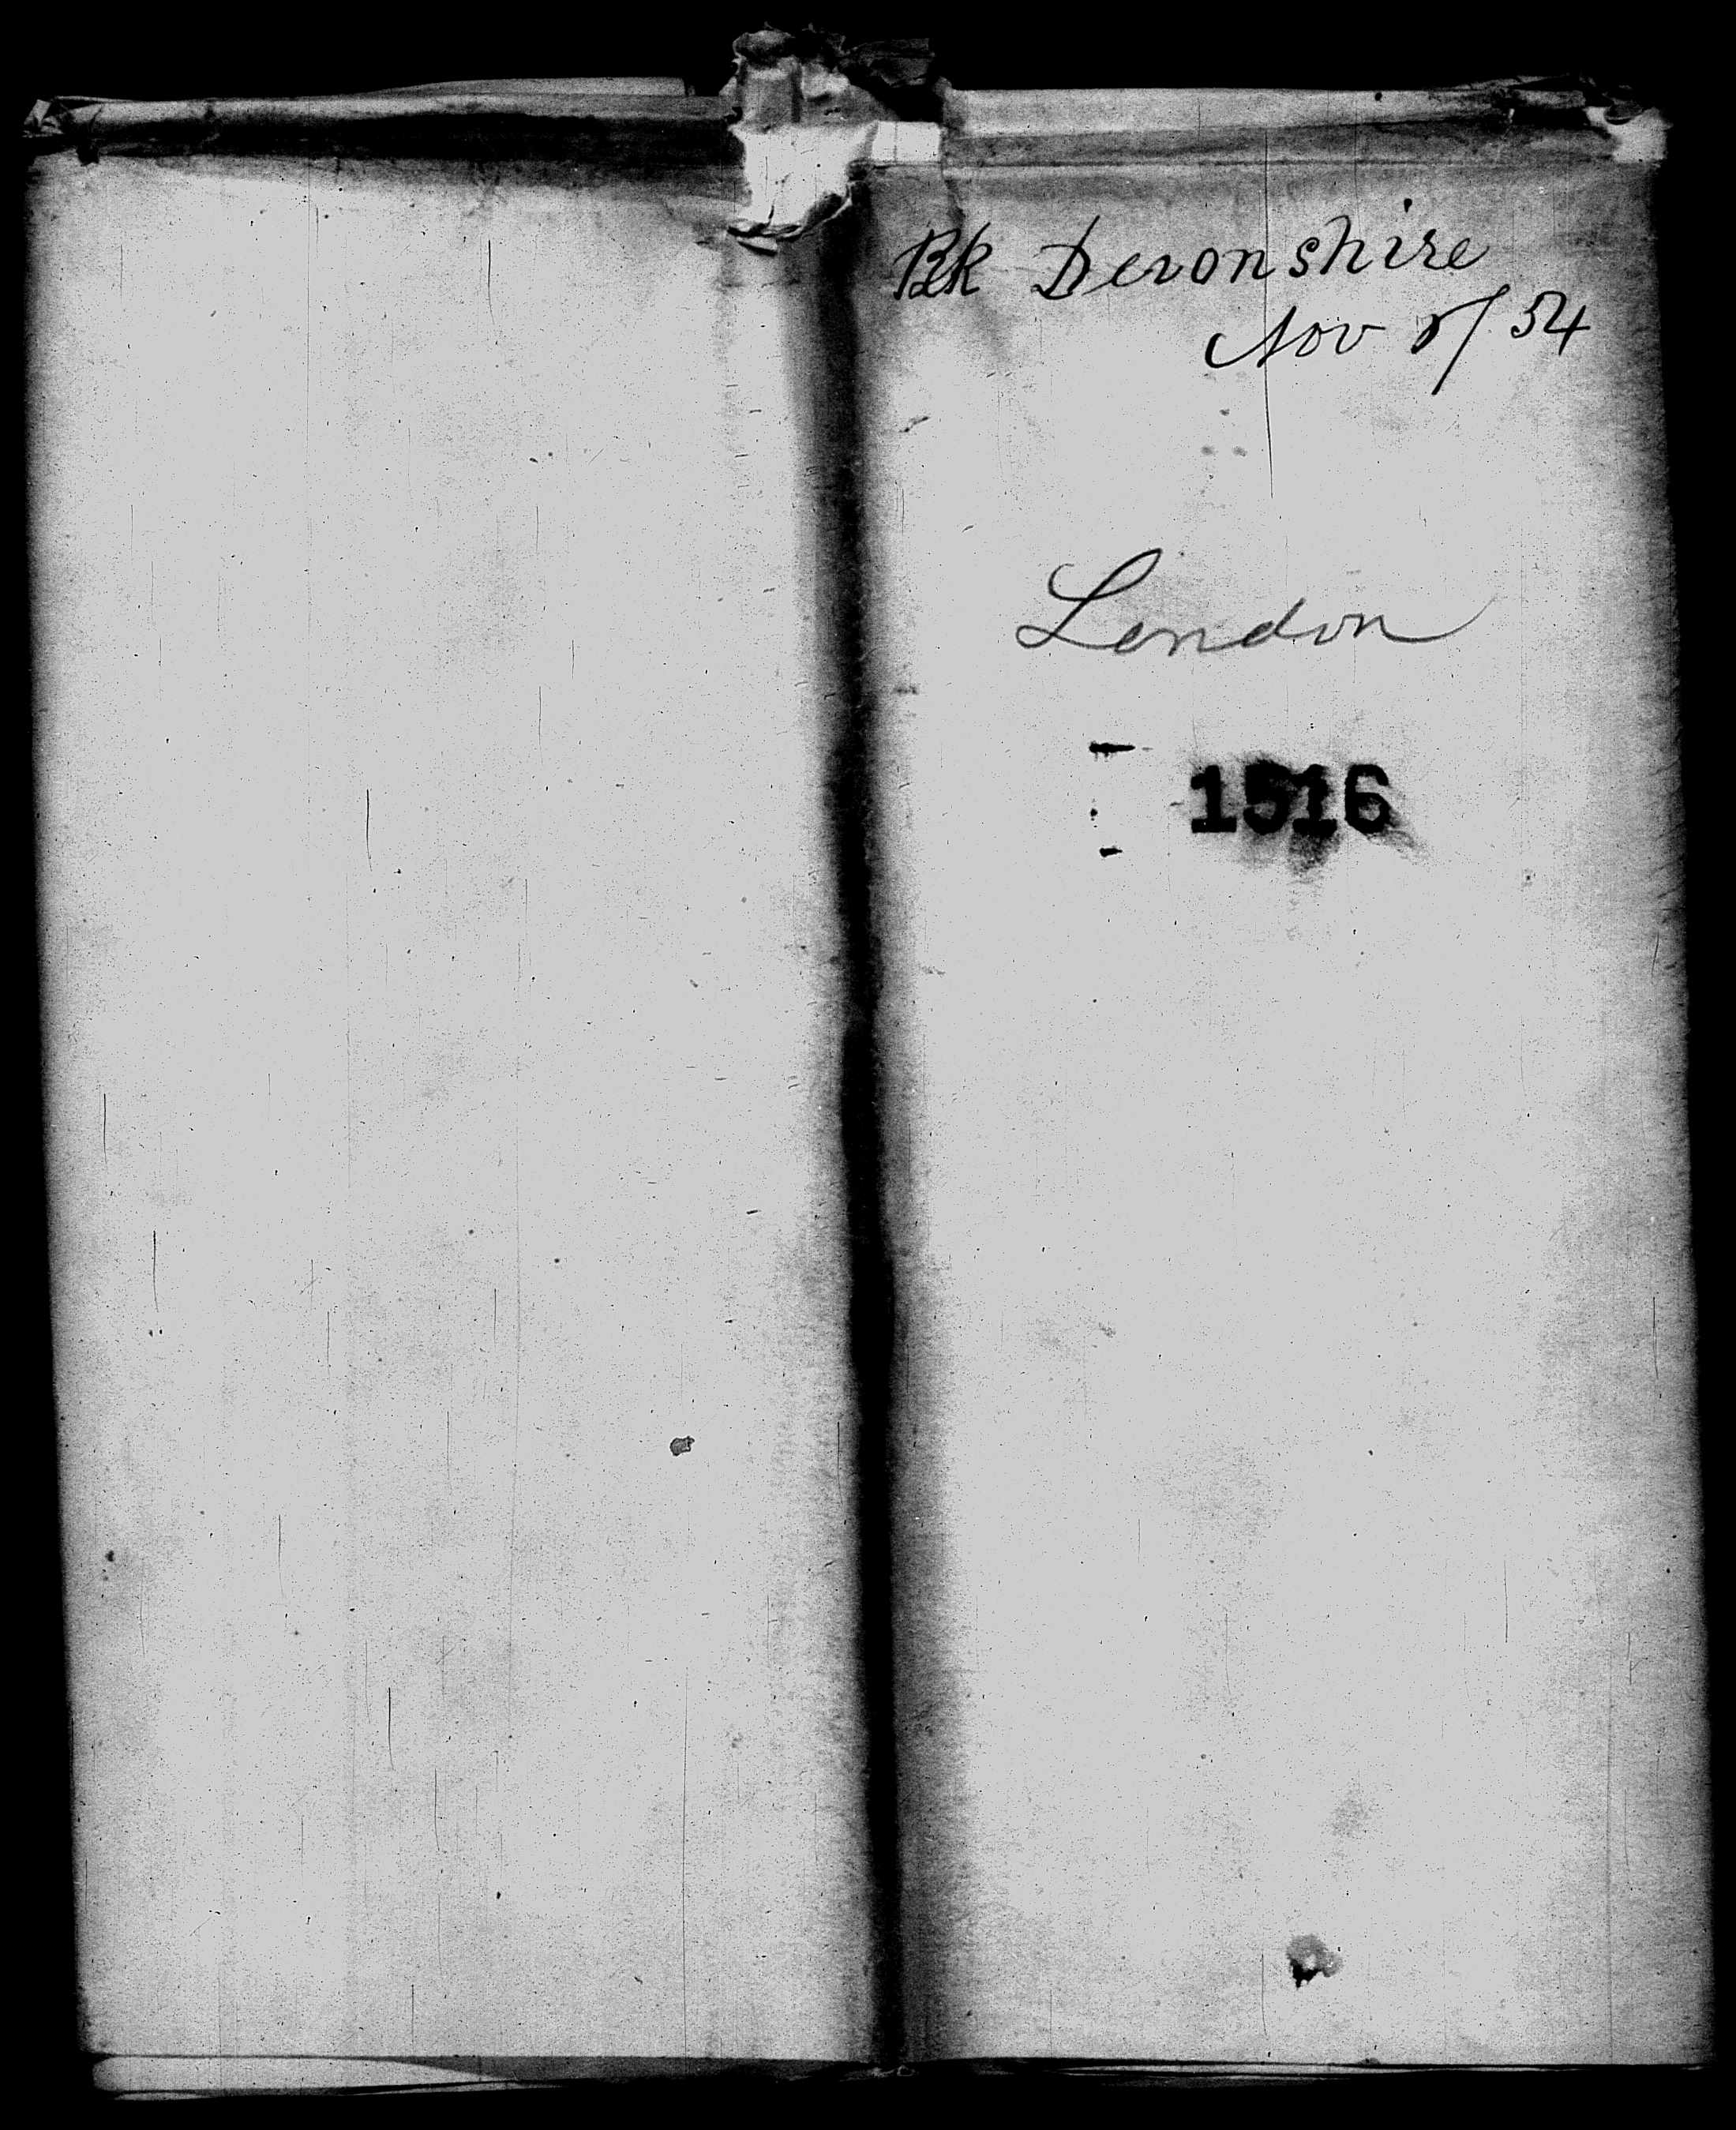 Bk Devonshire
Nov 8/54
London
1516